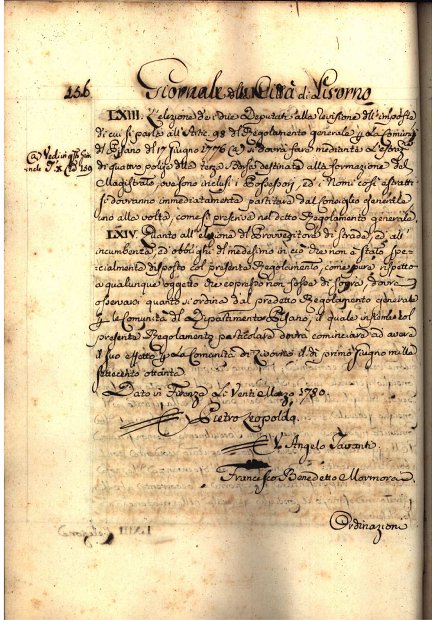 156
Giornale della Città di Livorno
LXIII. L'elezione de i due Deputati alla revisione dell'imposte
di cui si parla all'Artic. 98 del Regolamento generale p. le Comunità
del Pisano del 17 Giugno 1776 (a) si dovrà fare mediante l'estraz.
di quattro polize della terza Borsa destinata alla formazione del
Magistrato, ove sono inclusi i Possessori, ed i Nomi così estratti
si dovranno immediatamente partitare dal Consiglio Generale
uno alla volta, come si prescrive nel detto Regolamento generale
(a) Vedi in q.sto Gior-
nale
LXIV. Quanto all'elezione di Provveditore di strade, ed all'
incumbenza, ed obblighi del medesimo in ciò che non è stato spe-
cialmente disposto col presente Regolamento, come pure rispetto
a qualunque oggetto che espresso non fosse di sopra, dovrà
osservarsi quanto si ordina dal predetto Regolamento generale
p. le Comunità del Dipartimento Pisano, il quale insieme col
presente Regolamento particolare dovrà cominciare ad avere
il suo effetto p. la Comunità di Livorno il dì primo Giugno mille
settecento ottanta.
Dato in Firenze Li Venti Marzo 1780.
Pietro Leopoldo.
V. Angelo Tavanti
Francesco Benedetto Mormorai.
Ordinazioni